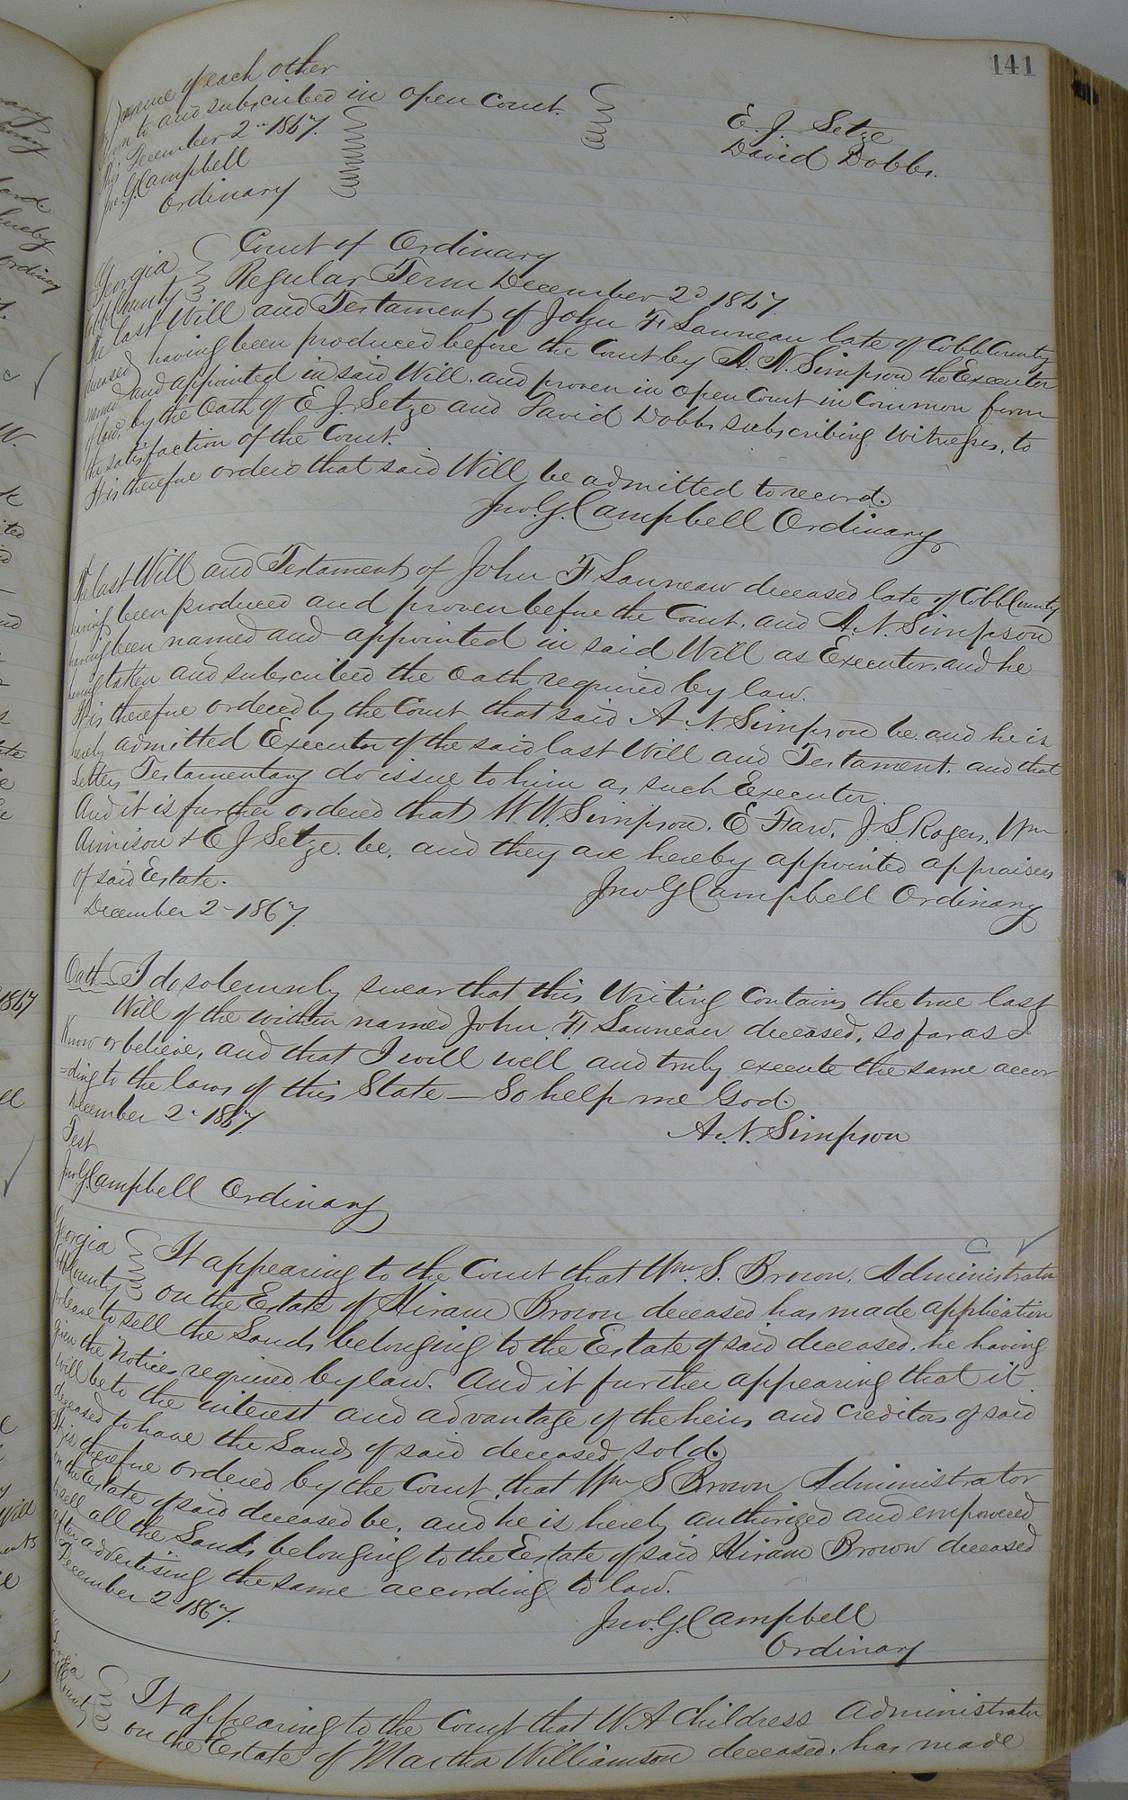 141
presence of each other
Sworn to and subscribed in open Court.
this December 2" 1867.
Jno. G. Campbell
Ordinary
E. J. Setze
David Dobbs.
Georgia
Cobb County
Court of Ordinary
Regular Term December 2d 1867
The last Will and Testament of John F Launeau late of Cobb County
deceased, having been produced before the Court by A. N. Simpson the Executor
named and appointed in said Will, and proven in open Court in Common form
of law, by the Oath of E. J. Setze and David Dobbs subscribing Witnesses, to
the satisfaction of the Court.
It is therefore ordered that said Will be admitted to record.
Jno. G. Campbell Ordinary
The last Will and Testament of John F Launeau deceased late of Cobb County
having been produced and proven before the Court, and A. N. Simpson
having been named and appointed in said Will as Executor, and he
having taken and subscribed the oath required by law.
It is therefore ordered by the Court that said A. N. Simpson be and he is
hereby admitted Executor of the said last Will and Testament, and that
Letters Testamentary do issue to him as such Executor.
And it is further ordered that W. W. Simpson, E Faw, J. S. Rogers, Wm
& E J Setze be, and they are hereby appointed appraisers
of said Estate.
December 2" 1867.
Jno G Campbell Ordinary
Oath I do solemnly swear that this Writing Contains the true last
Will of the within named John F. Launeau deceased, so far as I
Know or believe, and that I will well and truly execute the same accor
=ding to the laws of this State — So help me God.
December 2" 1867
A. N. Simpson
Test
Jno G. Campbell Ordinary
Georgia
Cobb County
It appearing to the Court that Wm. S. Brown, Administrator
on the Estate of Hiram Brown deceased has made application
for leave to sell the Lands belonging to the Estate of said deceased, he having
given the Notices required by law. And it further appearing that it
will be to the interest and advantage of the heirs and creditors of said
deceased to have the Lands of said deceased sold.
It is therefore ordered by the Court, that Wm S Brown Administrator
on the Estate of said deceased be, and he is hereby authorized and empowered
to sell all the Lands belonging to the Estate of said Hiram Brown deceased
after advertising the same according to law.
December 2" 1867.
Jno. G. Campbell
Ordinary
Georgia
Cobb County
It appearing to the Court that W. A Childress Administrator
on the Estate of Martha Williamson deceased, has made